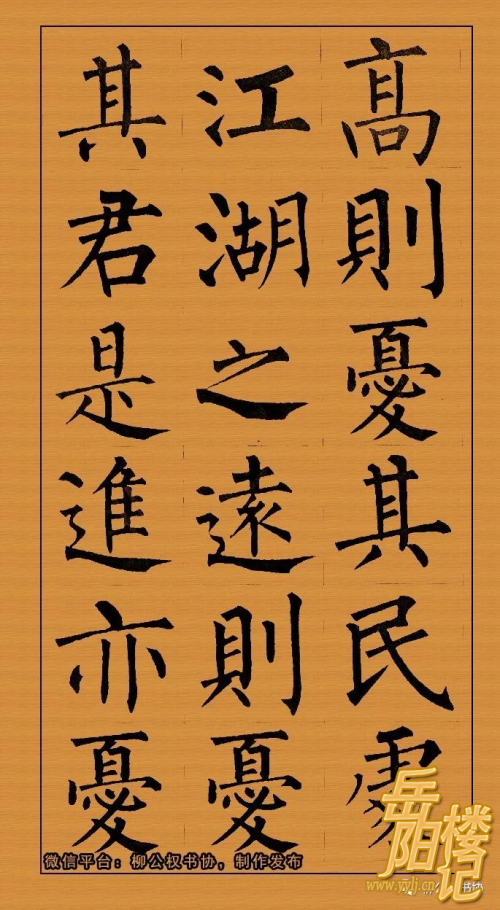 髙則憂其民處
江湖之遠則憂
其君是進亦憂
微信平台：柳公权书协，制作发布
岳阳楼记
www.yylj.cn